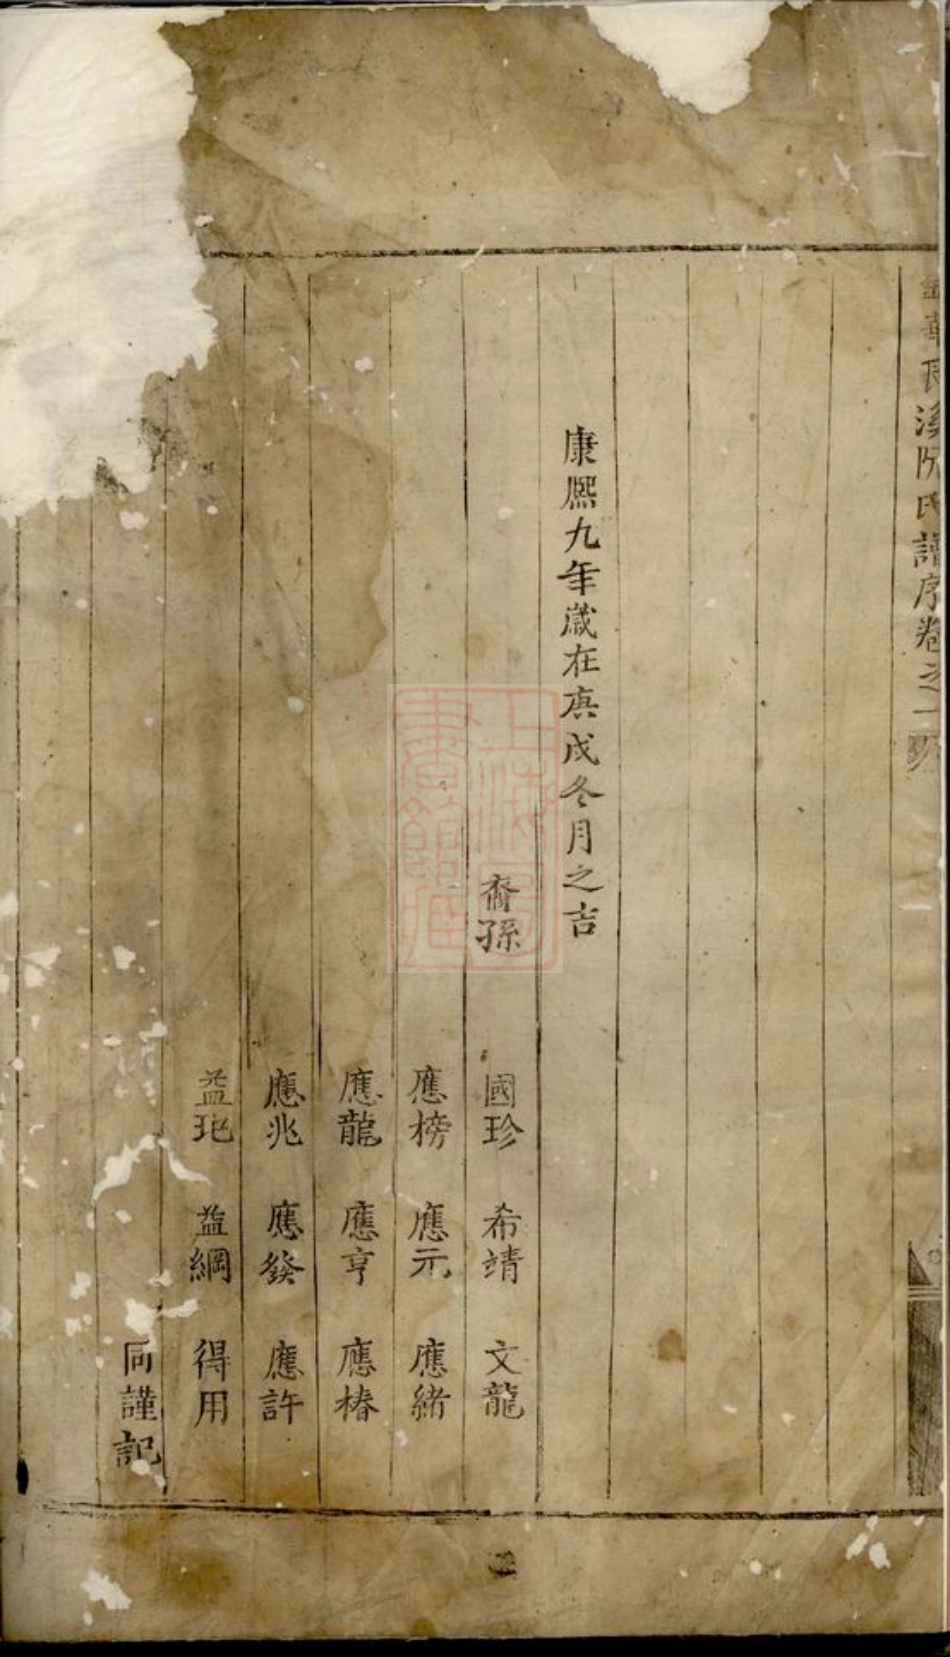 金華長溪阮氏譜序卷之一
康熙九年歲在庚戌冬月之吉
裔孫
國珍 希靖 文龍
應榜 應元 應緒
應龍 應亨 應椿
應兆 應發 應許
益玘 益綱 得用
同謹記
上海圖書館藏